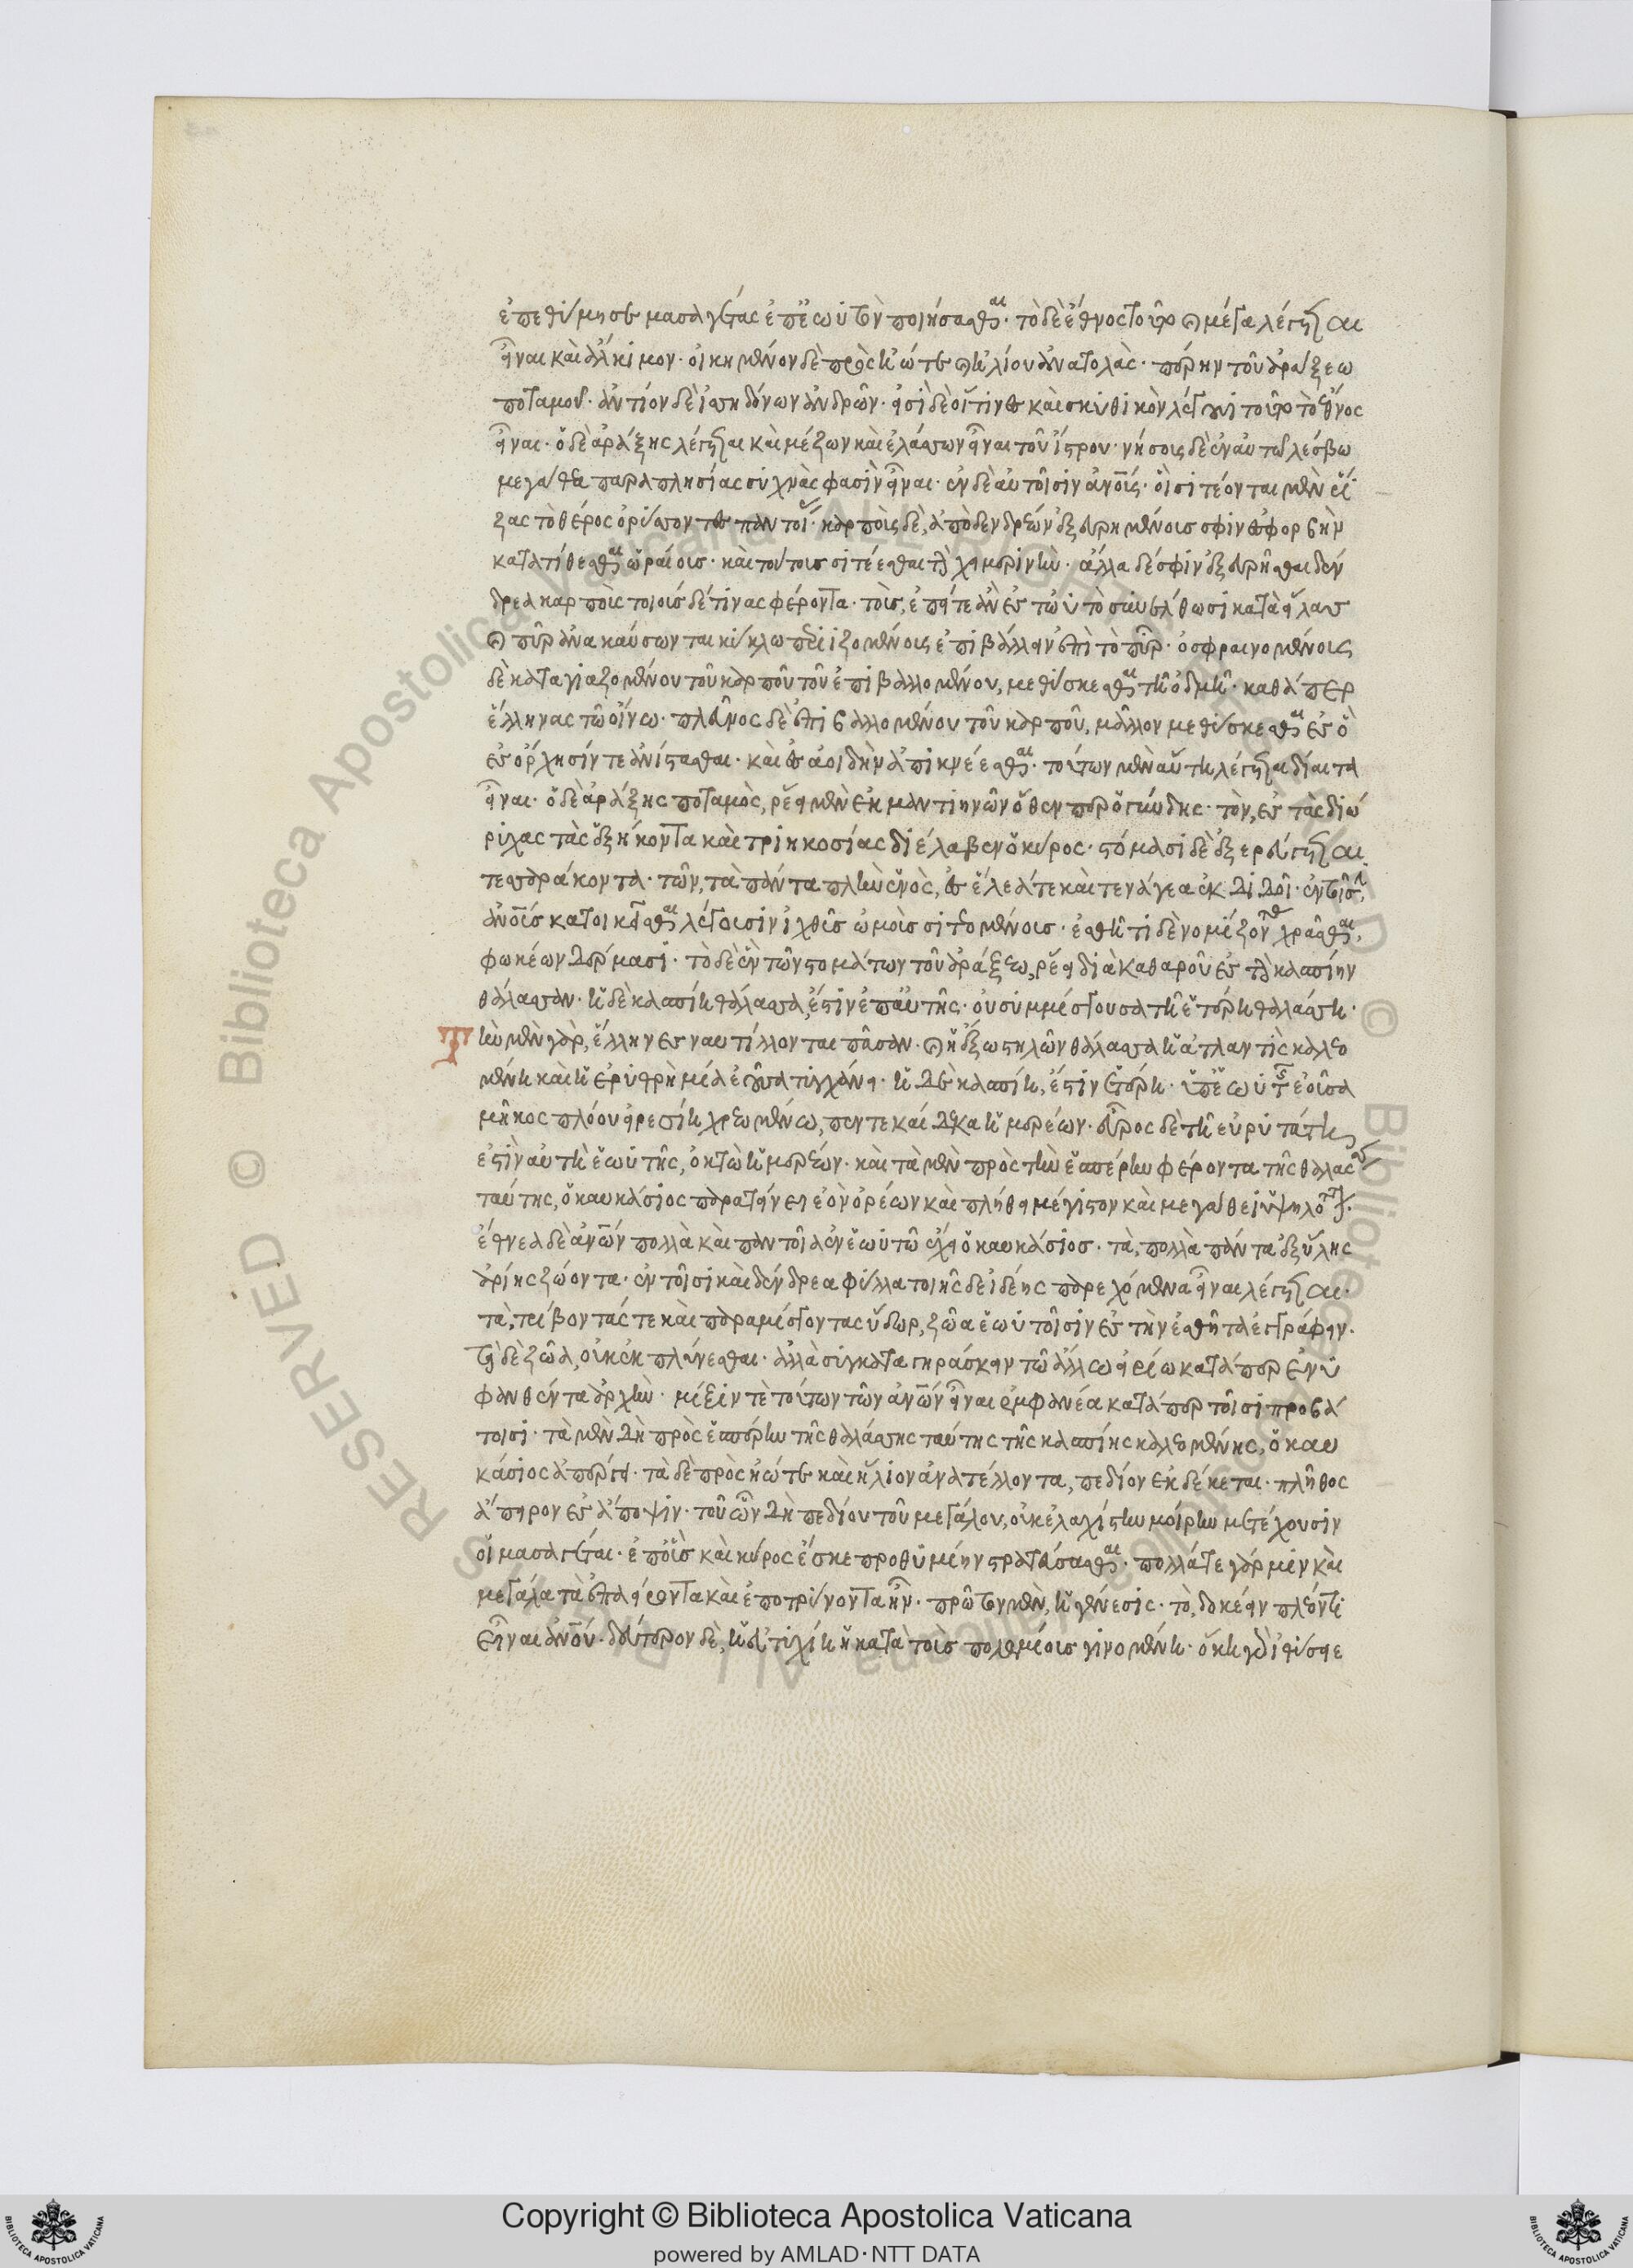 ἐπεθύμησε μασαγέτας ἐπ' ἑωυτὸν ποιήσασθαι. τὸ δὲ ἔθνος τοῦτο καὶ μέγα λέγεται
εἶναι καὶ ἄλκιμον. οἰκημένον δὲ πρὸς ἠῶ τε καὶ ἡλίου ἀνατολάς. πέρην τοῦ ἀράξεω
ποταμοῦ. ἀντίον δὲ ἰσσηδόνων ἀνδρῶν. εἰσὶ δὲ οἵτινες καὶ σκυθικὸν λέγουσι τοῦτο τὸ ἔθνος
εἶναι. ὁ δὲ ἀράξης λέγεται καὶ μέζων καὶ ἐλάσσων εἶναι τοῦ ἴστρου. νήσους δὲ ἐν αὐτῷ λέσβω
μεγάθεα παραπλησίας συχνάς φασιν εἶναι. ἐν δὲ αὐτοῖσιν ἀνους. οἳ σιτέονται μὲν ῥί
ζας τὸ θέρος ὀρύσσοντες παντοί. καρποὺς δὲ, ἀπὸ δενδρέων ἐξευρημένους σφιν ἐς φορβὴν
κατατίθεσθαι ὡραίους. καὶ τούτους σιτέεσθαι τὴν χειμερινήν. ἄλλα δέ σφιν ἐξευρῆσθαι δέν
δρεα καρποὺς τοιούσδέ τινας φέροντα. τοὺς, ἐπείτε ἂν ἐς τὠυτὸ συνέλθωσι κατὰ εἴλας
καὶ πῦρ ἀνακαύσωνται κύκλω περιιζομένους ἐπιβάλλειν ἐπὶ τὸ πῦρ. ὀσφραινομένους
δὲ καταγιαζομένου τοῦ καρποῦ τοῦ ἐπιβαλλομένου, μεθύσκεσθαι τῆ ὀδμῆ. καθάπερ
ἕλληνας τῶ οἴνω. πλεῦνος δὲ ἐπιβαλλομένου τοῦ καρποῦ, μᾶλλον μεθύσκεσθαι ἐς ὃ
ἐς ὄρχησίν τε ἀνίστασθαι. καὶ ἐς ἀοιδὴν ἀπικνέεσθαι. τούτων μὲν αὕτη λέγεται δίαιτα
εἶναι. ὁ δὲ ἀράξης ποταμὸς, ῥέει μὲν ἐκ μαντιηνῶν ὅθεν περ ὁ γύνδης. τὸν, ἐς τὰς διώ
ρυχας τὰς ἑξήκοντα καὶ τριηκοσίας διέλαβεν ὁ κῦρος. στόμασι δὲ ἐξερεύγεται
τεσσεράκοντα. τῶν, τὰ πάντα πλὴν ἑνὸς, ἐς ἕλεά τε καὶ τενάγεα ἐκδιδοῖ. ἐν τοῖσι
ἀνους κατοικῆσθαι λέγουσιν ἰχθῦς ὠμοὺς σιτεομένους. ἐσθῆτι δὲ νομίζοντας χρᾶσθαι,
φωκέων δέρμασι. τὸ δὲ ἓν τῶν στομάτων τοῦ ἀράξεω, ῥέει διὰ καθαροῦ ἐς τὴν κασπίην
θάλασσαν. ἡ δὲ κασπίη θάλασσα, ἐστὶν ἐπ' ἑωυτῆς. οὐ συμμίσγουσα τῆ ἑτέρη θαλάσση.
Τὴν μὲν γὰρ, ἕλληνες ναυτίλλονται πᾶσαν. καὶ ἡ ἔξω στηλῶν θάλασσα ἡ ἀτλαντὶς καλεο
μένη καὶ ἡ ἐρυθρὴ μία ἐοῦσα τυγχάνει. ἡ δὲ κασπίη, ἐστὶν ἑτέρη. ἐπ' ἑωυτῆς ἐοῦσα
μῆκος πλόου εἰρεσίη χρεωμένω, πεντεκαίδεκα ἡμερέων. εὖρος δὲ τῆ εὐρυτάτη
ἐστὶν αὐτὴ ἑωυτῆς, ὀκτὼ ἡμερέων. καὶ τὰ μὲν πρὸς τὴν ἑσπέρην φέροντα τῆς θαλάσσης
ταύτης, ὁ καυκάσιος παρατείνει ἐὸν ὀρέων καὶ πλήθει μέγιστον καὶ μεγάθει ὑψηλότατον.
ἔθνεα δὲ ἀνων πολλὰ καὶ παντοῖα ἐν ἑωυτῶ ἔχει ὁ καυκάσιος. τὰ, πολλὰ πάντα ἐξ ὕλης
ἀγρίης ζώοντα. ἐν τοῖσι καὶ δένδρεα φύλλα τοιῆσδε ἰδέης παρεχόμενα εἶναι λέγεται.
τὰ, τρίβοντάς τε καὶ παραμίσγοντας ὕδωρ, ζῶα ἑωυτοῖσιν ἐς τὴν ἐσθῆτα ἐγγράφειν.
τὰ δὲ ζῶα, οὐκ ἐκπλύνεσθαι. ἀλλὰ συγκαταγηράσκειν τῶ ἄλλω εἰρίω κατάπερ ἐνυ
φανθέντα ἀρχήν. μίξιν τὲ τούτων τῶν ἀνων εἶναι ἐμφανέα κατάπερ τοῖσι προβά
τοισι. τὰ μὲν δὴ πρὸς ἑσπέρην τῆς θαλάσσης ταύτης τῆς κασπίης καλεομένης, ὁ καυ
κάσιος ἀπέργει. τὰ δὲ πρὸς ἠῶ τε καὶ ἥλιον ἀνατέλλοντα, πεδίον ἐκδέκεται. πλῆθος
ἄπειρον ἐς ἄποψιν. τοῦ ὦν δὴ πεδίου τοῦ μεγάλου, οὐκ ἐλαχίστην μοίρην μετέχουσιν
οἱ μασαγέται. ἐπ' οὓς καὶ κῦρος ἔσχε προθυμίην στρατεύσασθαι. πολλά τε γάρ μιν καὶ
μεγάλα τὰ ἐπαείροντα καὶ ἐποτρύνοντα ἦν. πρῶτον μὲν, ἡ γένεσις. τὸ, δοκέειν πλέον τι
εἶναι ἀνου. δεύτερον δὲ, ἡ εὐτυχίη ἡ κατὰ τοὺς πολεμίους γινομένη. ὅκη γὰρ ἰθύσειε